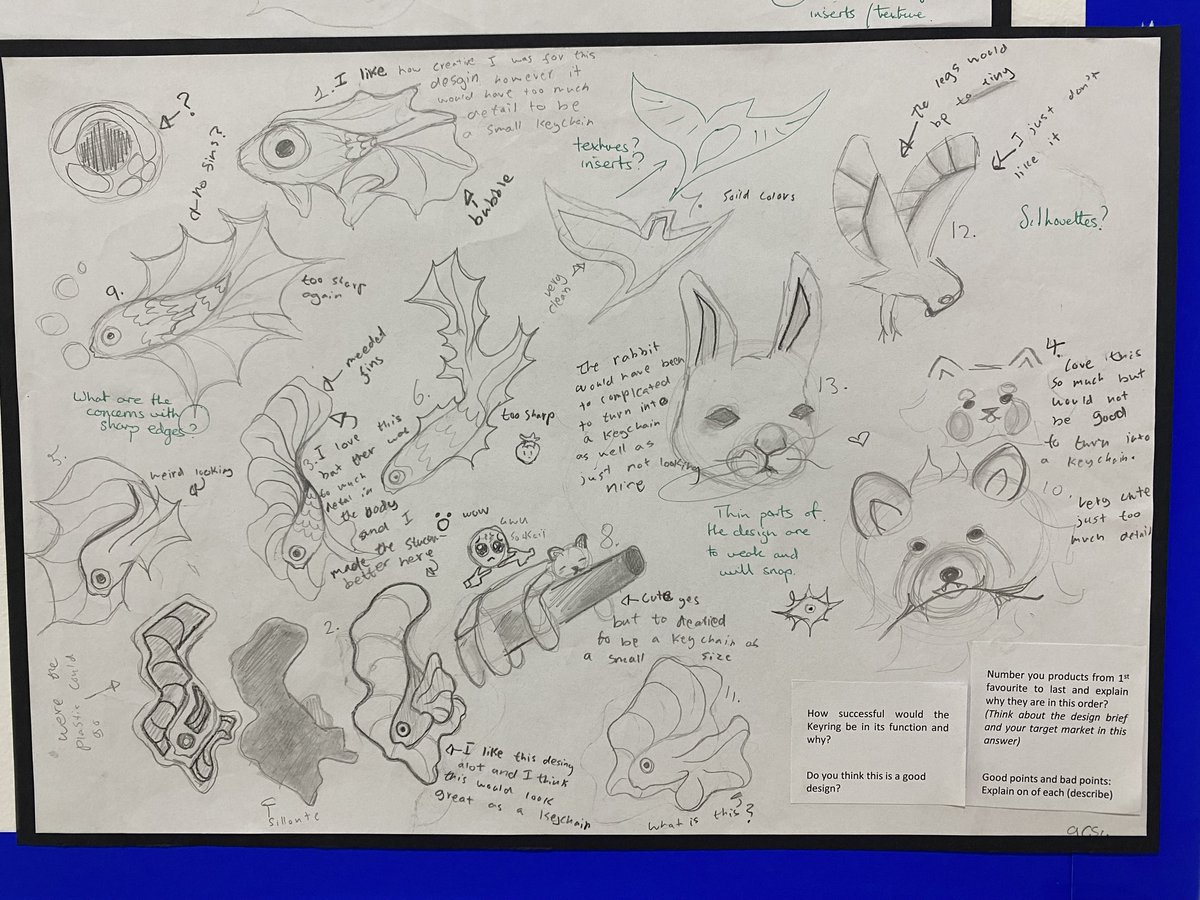 inserts / texture.
1. I like how creative I was for this
desgin however it
would have too much
detail to be
a small keychain
?
No fins?
bubble
textures?
inserts?
Soild colors
very
clean
The legs would
be to tiny
I just don't
like it
12.
Silhouettes?
9.
too sharp
again
What are the
concerns with
sharp edges?
!
needed
fins
3. I love this
but ther was
to much
detail in
the body
and I
made the
better here
6.
too sharp
The rabbit
would have been
to complicated
to turn into
a keychain
as well as
just not looking
nire
13.
4.
Love this
so much but
would not
be good
to turn into
a keychain.
10.
very cute
just too
much detail
5.
weird looking
wow
uwu
8.
Thin parts of
the design are
to weak and
will snap.
cute yes
but to
to be a keychain as
a small size
were the
plastic could
go
2.
I like this desing
alot and I think
this would look
great as a keychain
sillonte
11.
what is this?
How successful would the
Keyring be in its function and
why?
Do you think this is a good
design?
Number you products from 1st
favourite to last and explain
why they are in this order?
(Think about the design brief
and your target market in this
answer)
Good points and bad points:
Explain on of each (describe)